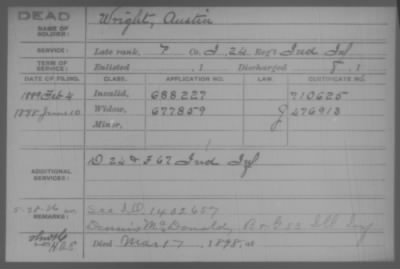 DEAD
NAME OF SOLDIER: Wright, Austin
SERVICE: Late rank, Co. I, 24 Reg't Ind Inf
TERM OF SERVICE: Enlisted , 1 Discharged , 1
DATE OF FILING. CLASS. APPLICATION NO. LAW. CERTIFICATE NO.
1889 Feb 4 Invalid, 688227 710625
1898 June 10 Widow, 677859 476913
Minor,
ADDITIONAL SERVICES: D 24 & F 67 Ind Inf
REMARKS: See I.O. 1402657
Dennis McDonald, B & G 53 Ill Inf
Died Mar 17, 1898, at